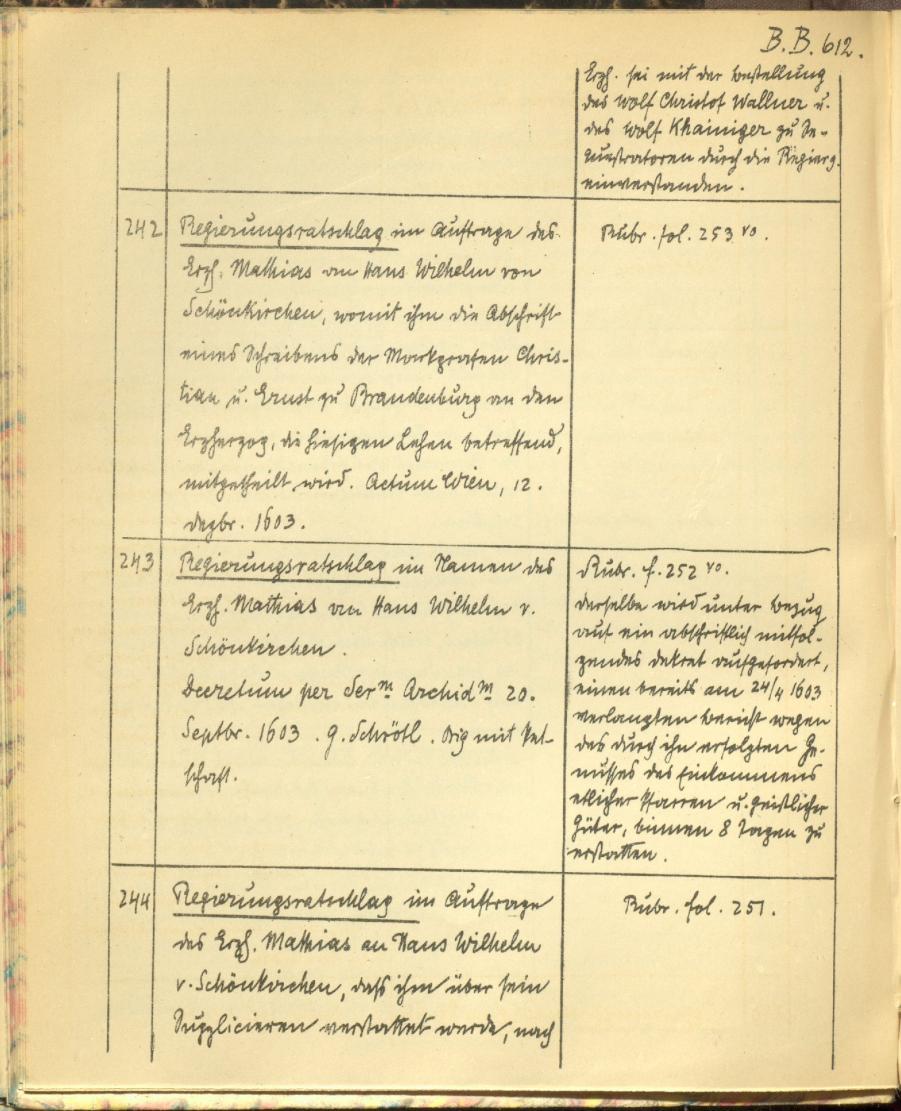 B.B. 612.
Erzh. sei mit der Bestellung
des Wolf Christof Wallner u.
des Wolf Khainiger zu Se-
questratoren durch die Regierg.
einverstanden.
242
Regierungsratschlag im Auftrage des
Erzh. Mathias an Hans Wilhelm von
Schönkirchen, womit ihm die Abschrift
eines Schreibens der Markgrafen Chris-
tian u. Ernst zu Brandenburg an den
Erzherzog, die hiesigen Lehen betreffend,
mitgetheilt wird. Actum Wien, 12.
Dezbr. 1603.
Rubr. fol. 253 vo.
243
Regierungsratschlag im Namen des
Erzh. Mathias an Hans Wilhelm v.
Schönkirchen.
Decretum per Serm Archidm 20.
Septbr. 1603. G. Schrötl. Orig mit Pet-
schaft.
Rubr. f. 252 vo.
Derselbe wird unter Bezug
auf ein abschriftlich mitfol-
gendes Dekret aufgefordert,
einen bereits am 24/4 1603
verlangten Bericht wegen
des durch ihn erfolgten Ge-
nusses des Einkommens
etlicher Pfarren u. geistlicher
Güter, binnen 8 Tagen zu
erstatten.
244
Regierungsratschlag im Auftrage
des Erzh. Mathias an Hans Wilhelm
v. Schönkirchen, daß ihm über sein
Supplicieren verstattet werde, nach
Rubr. fol. 251.